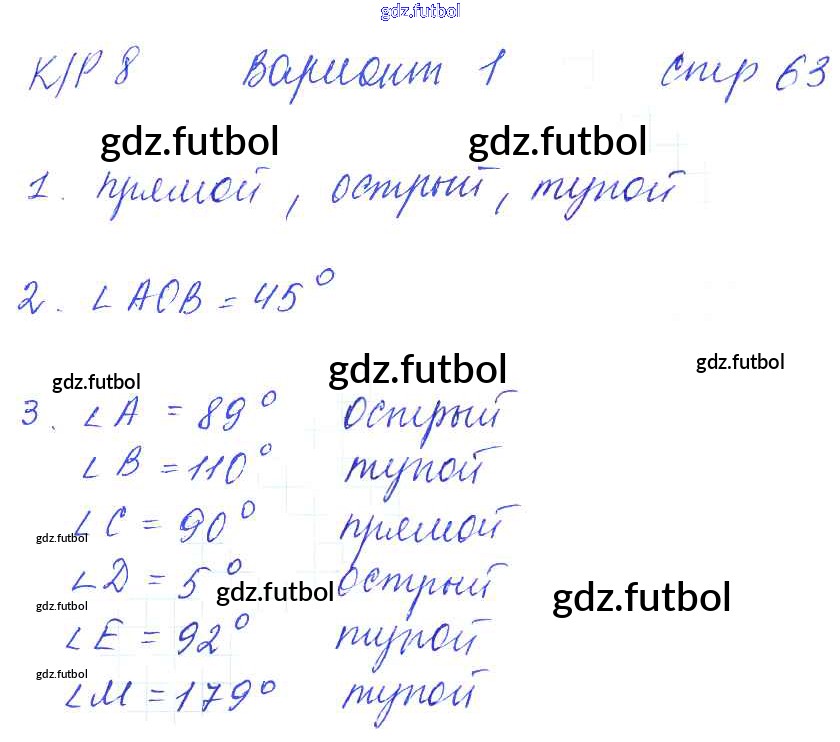 gdz.futbol
К/Р 8 Вариант 1 стр 63
gdz.futbol gdz.futbol
1. прямой, острый, тупой
2. ∠AOB = 45°
gdz.futbol gdz.futbol gdz.futbol
3. ∠A = 89° острый
∠B = 110° тупой
∠C = 90° прямой
gdz.futbol
∠D = 5° острый
gdz.futbol gdz.futbol gdz.futbol
∠E = 92° тупой
gdz.futbol
∠M = 179° тупой